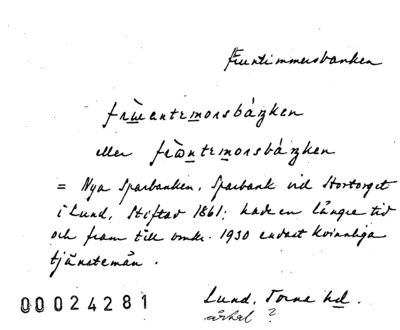 Fruntimmersbanken
frùwantemorsbáŋken
eller frùntemorsbáŋken
= Nya Sparbanken, Sparbank vid Stortorget
i Lund, Stiftad 1861; hade en längre tid
och fram till omkr. 1930 endast kvinnliga
tjänstemän.
00024281 Lund, Torna hd.
?